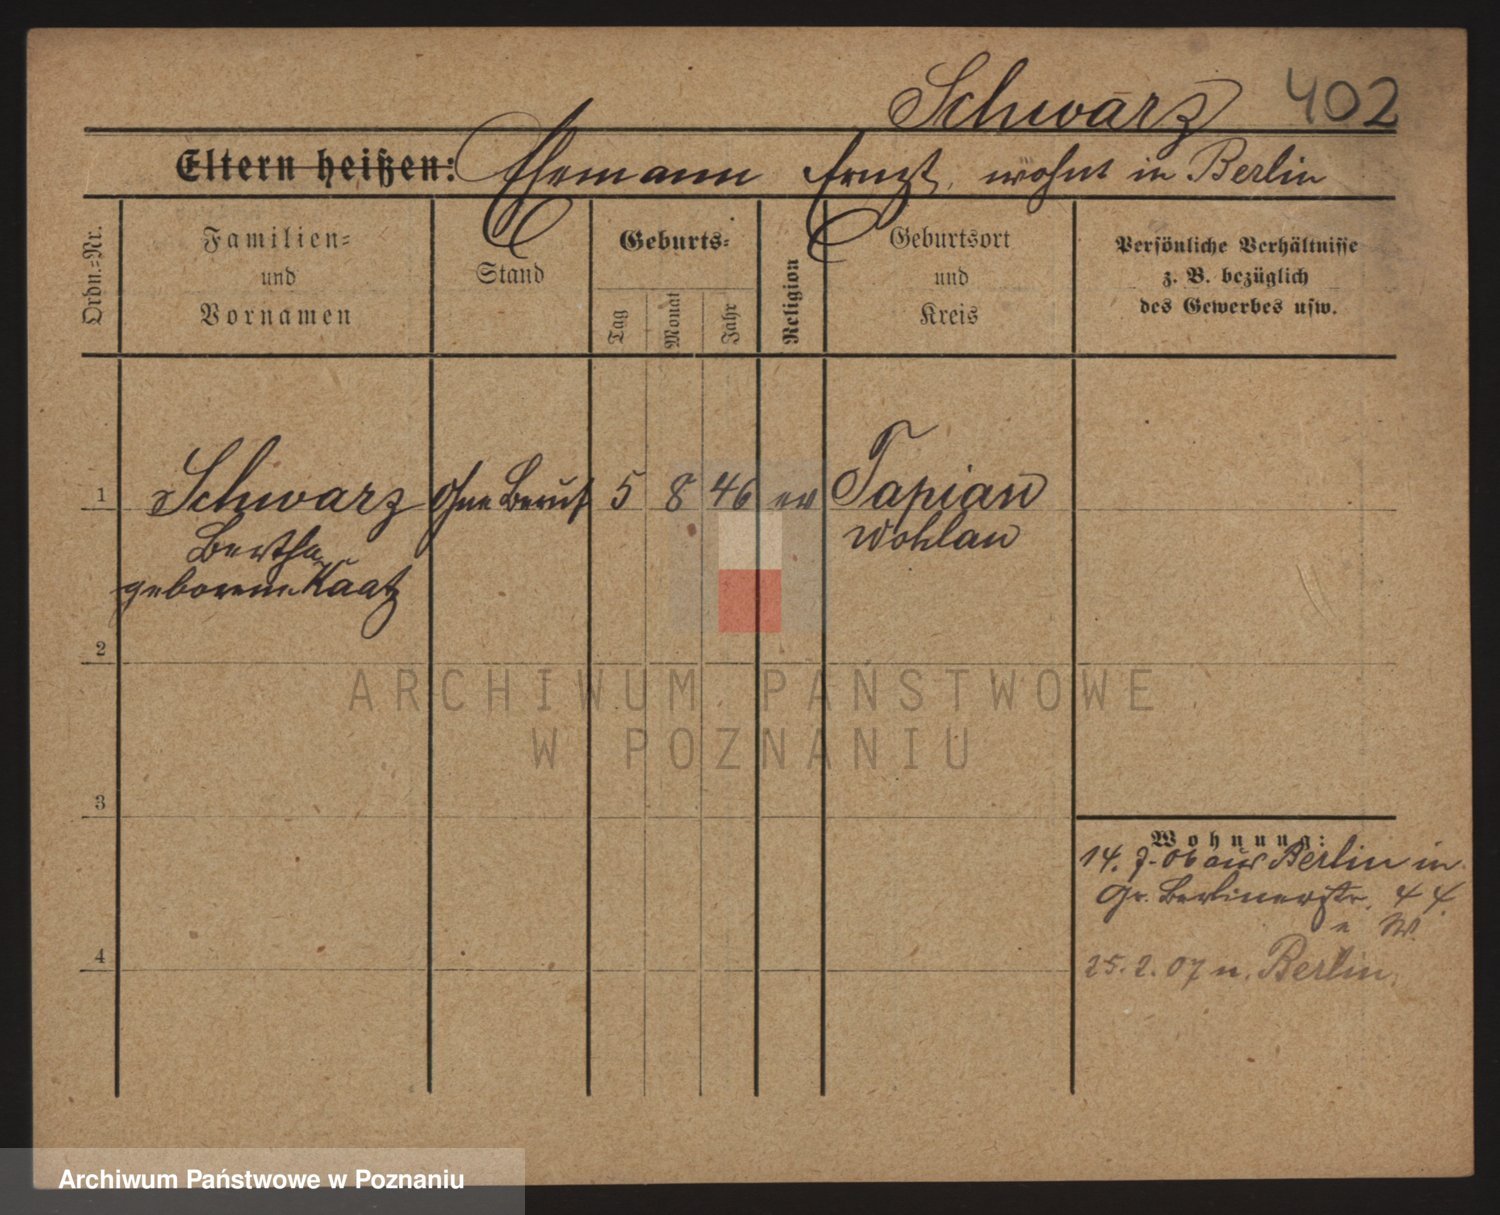 Schwarz 402
Eltern heißen: Ehemann Ernst, wohnt in Berlin
Ordn.=Nr.
Familien=
und
Vornamen
Stand
Geburts=
Tag
Monat
Jahr
Religion
Geburtsort
und
Kreis
Persönliche Verhältnisse
z. B. bezüglich
des Gewerbes usw.
1 Schwarz ohne Beruf 5 8 46 ev Tapiau
Bertha Wohlau
geborene Kaatz
2
3
4
ARCHIWUM PAŃSTWOWE
W POZNANIU
Wohnung:
14. 7. 06 aus Berlin in
Gr. Berlinerstr. 44.
W.
25. 2. 07 n. Berlin.
Archiwum Państwowe w Poznaniu